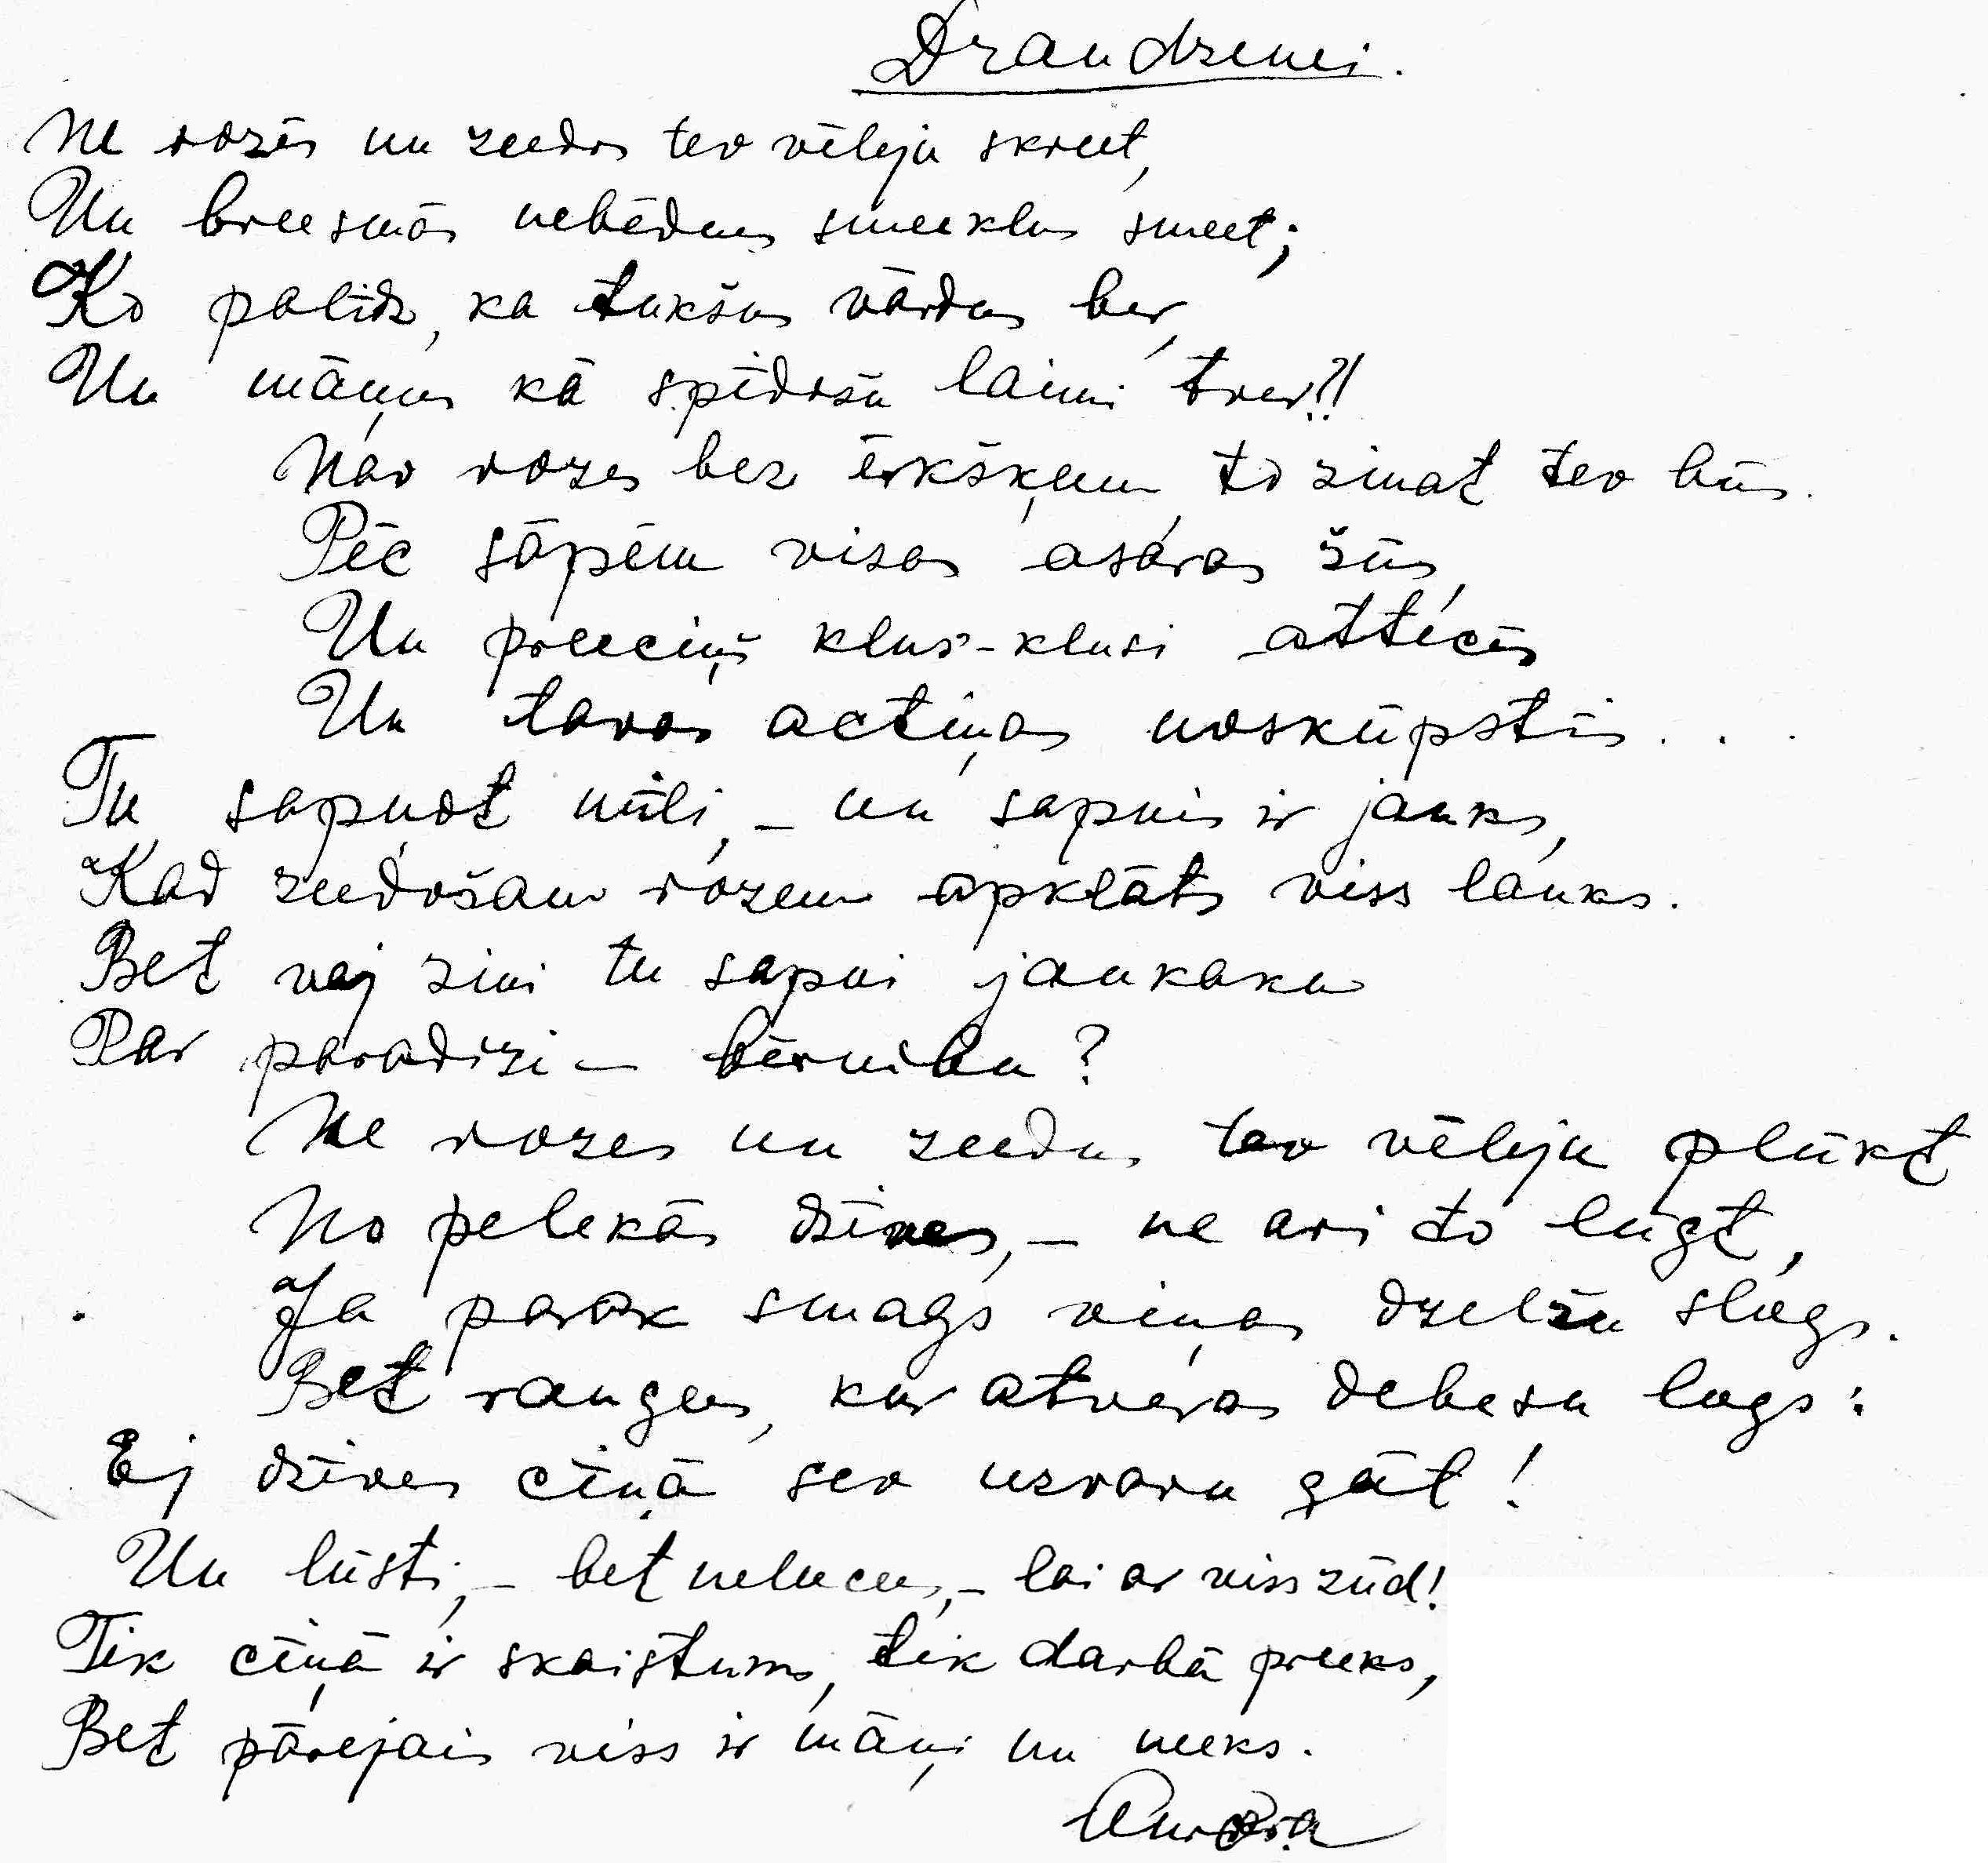 Draudzenei.
Ne rozēs un zeedos tev vēleju skreet,
Un breesmās nebēdnus smeeklus smeet;
Ko palīdz, ka tukšus vārdus ber,
Un māņus kā spīdošu laimi tver?!
Nav rozes bez ērkšķeem, to zinat tev būs.
Pēc sāpēm visas asaras žūs,
Un preeciņš klus-klusi atticīs
Un tavas actiņas noskūpstīs...
Tu sapņot mīli, - un sapnis ir jauks,
Kad zeedošam rozem apklāts viss lauks.
Bet vaj zini tu sapni jaukaku
Par paradizi - bērnibu?
Ne rozes un zeedus tev vēleju plūkt
No pelekās dzīves, - ne ari to lūgt,
Ja parak smags viņas dzelžu slogs.
Bet raugees, kur atveras debesu logs:
Ej dzīves cīņā sev uzvaru gūt!
Un lūsti, - bet nelocees, - lai ar viss zūd!
Tik cīņā ir skaistums, tik darbā preeks,
Bet pārejais viss ir māņi un neeks.
Aurora